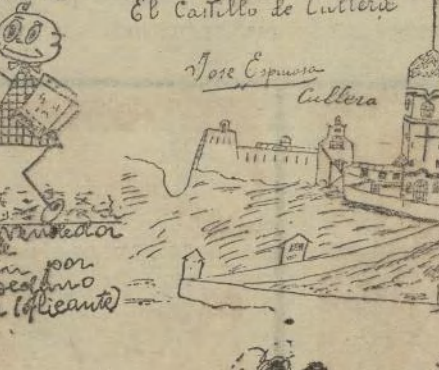 El Castillo de Cullera
Jose Espinosa
Cullera
vendedor
por
(Alicante)